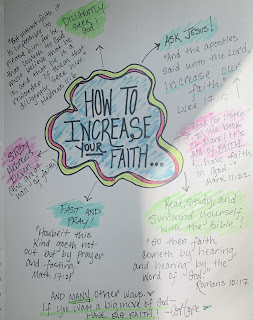 HOW TO
INCREASE
YOUR
FAITH...
DILIGENTLY
Seek
God
"But without faith it
is impossible to
please him: for he
that cometh to God
must believe that he
is, and that he is a
rewarder of them that
diligently seek him."
Hebrews 11:6
ASK JESUS!
"And the apostles
said unto the Lord,
Increase our
faith."
Luke 17:5
Read (or listen
to) the book
of Mark; it's
FULL OF FAITH!
have faith
in God.
Mark 11:22
STUDY
Hebrews
Chapter 11
"of faith"
FAST AND
PRAY!
"Howbeit this
Kind goeth not
out but by prayer
and fasting."
Math 17:21
Read, study and
surround yourself
with the Bible!
"So then faith
cometh by hearing,
and hearing by the
word of God."
Romans 10:17
AND MANY other ways.
If you want a big move of God—
HAVE BIG FAITH!